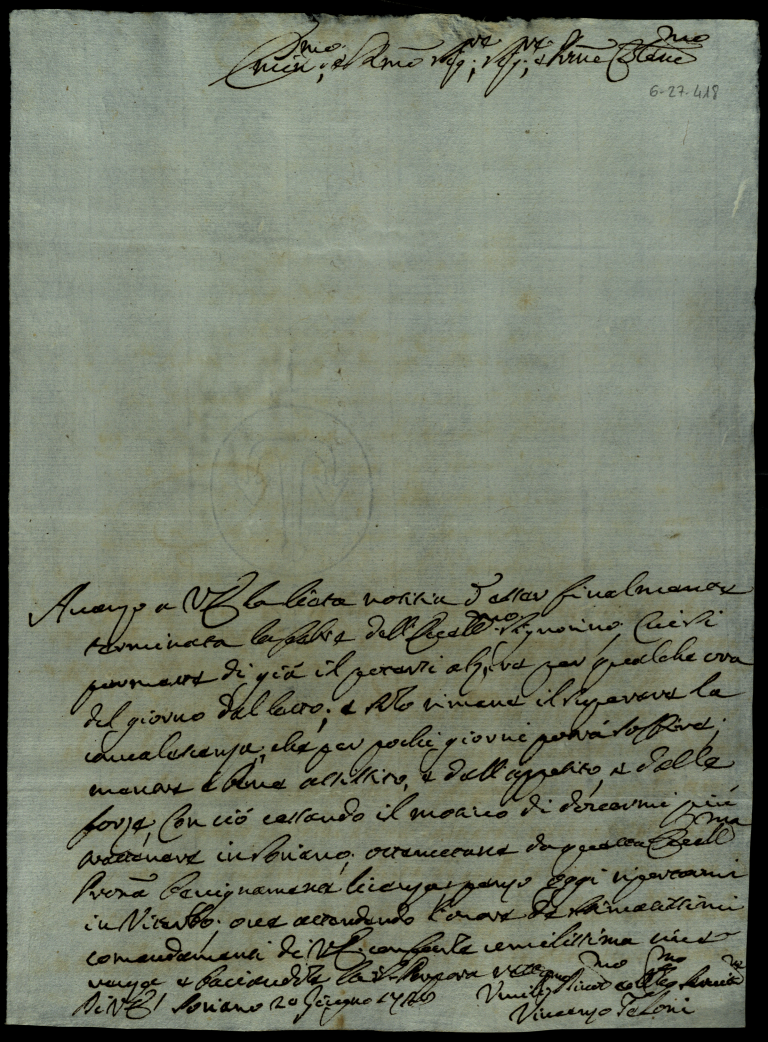 Emin.mo, e R.mo Sig.re, Sig.re, e P.rone Col.mo
6-27-418
Avanzo a V.E. la lieta notitia d'esser finalmente
terminata la febre dell'Eccell.mo Signorino, cui si
permette di già il potersi alzare per qualche ora
del giorno dal letto; e solo rimane il superare la
convalescenza, che per pochi giorni potrà soffrire,
mentre è bene assistito, e dall'appetito, e dalle
forze. Con ciò cessando il motivo di dovermi più
trattenere in Soriano, ottenutane da questa Eccell.ma
Pron.a benignamente licenza, penso oggi riportarmi
in Viterbo; ove attendendo l'onore de stimatissimi
comandamenti di V.E. con tutta umilissima
e baciandole la S. Porpora
Di V.E. Soriano 20 Giugno Umiliss.mo Oblig.mo
Vincenzo Taloni